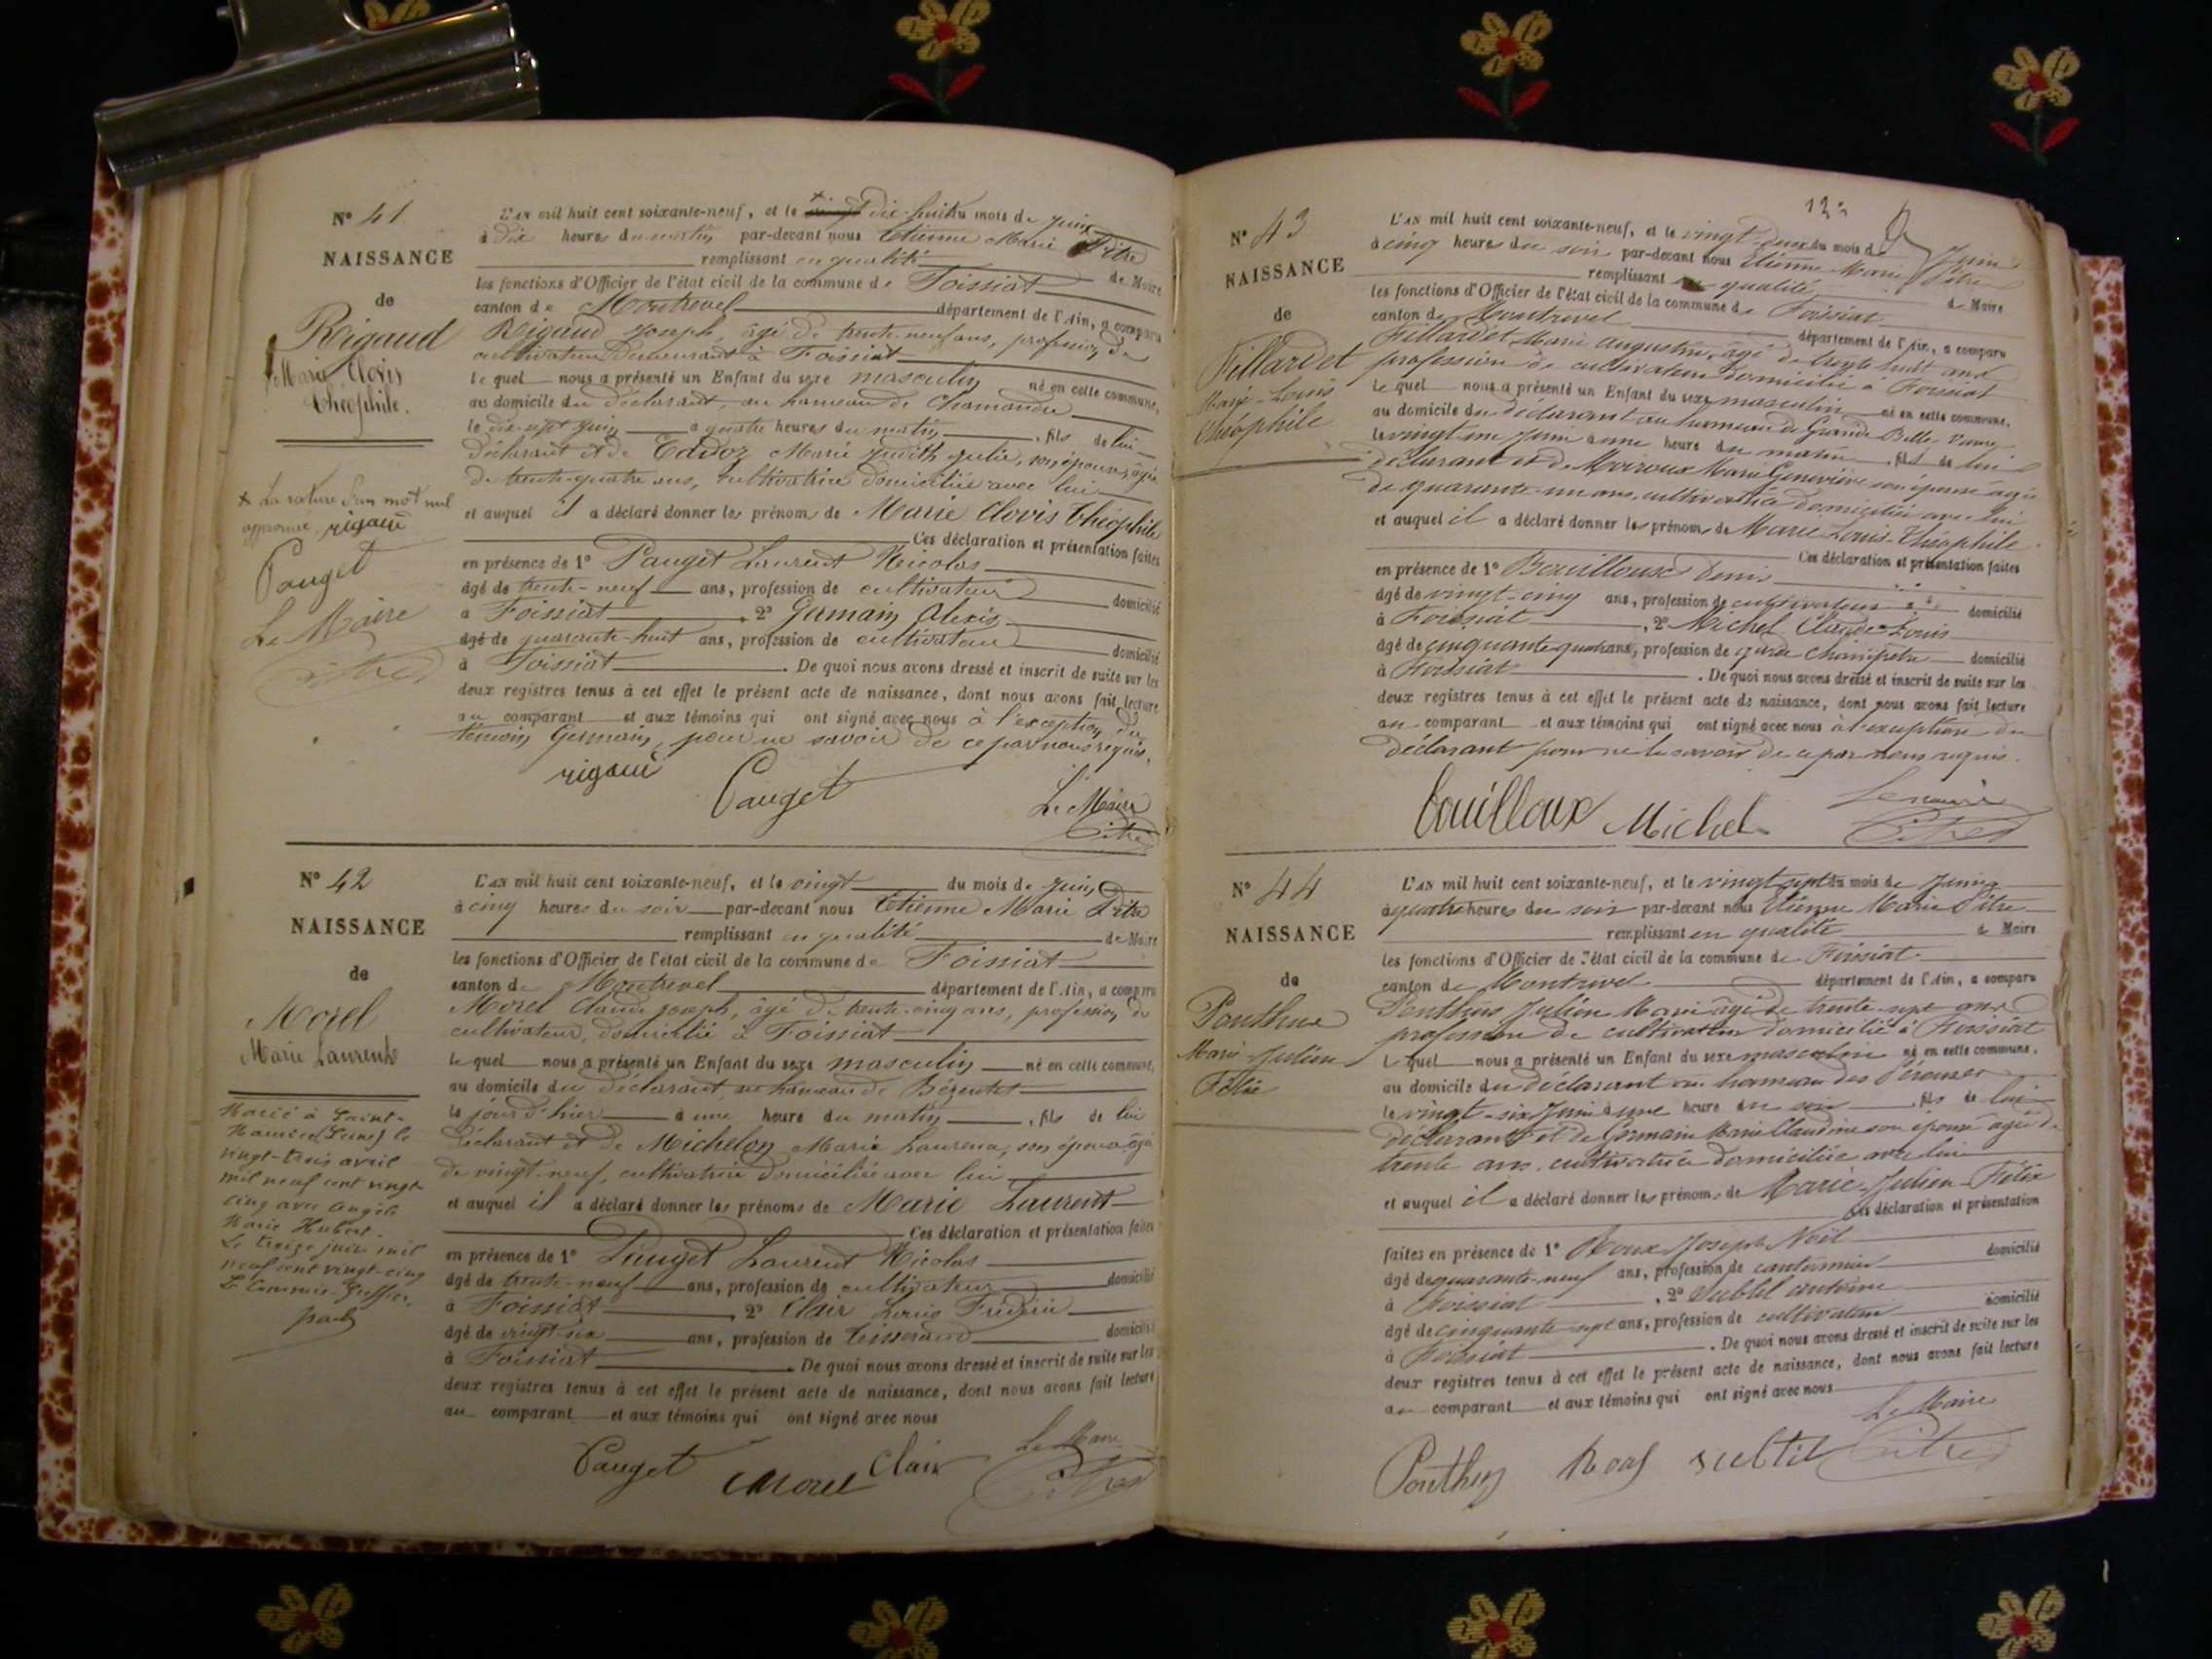 N° 41
NAISSANCE
de
Rigaud
Marie Clovis
Théophile.
L'AN mil huit cent soixante-neuf, et le dix-huit du mois de juin
à dix heures du matin par-devant nous Etienne Marie Pitre
remplissant en qualité de Maire
les fonctions d'Officier de l'état civil de la commune de Foissiat
canton de Montrevel département de l'Ain, a comparu
Rigaud Joseph, âgé de trente-neuf ans, profession de
cultivateur demeurant à Foissiat
lequel nous a présenté un Enfant du sexe masculin né en cette commune,
au domicile du déclarant, au hameau de Chamandre
le dix-sept juin à quatre heures du matin, fils de lui
déclarant et de Marie Judith Julie, son épouse, âgée
de trente-quatre ans, cultivatrice domiciliée avec lui
et auquel il a déclaré donner les prénoms de Marie Clovis Théophile
Ces déclaration et présentation faites
en présence de 1° Pauget Laurent Nicolas
âgé de trente-neuf ans, profession de cultivateur domicilié
à Foissiat, 2° Germain Alexis
âgé de quarante-huit ans, profession de cultivateur domicilié
à Foissiat. De quoi nous avons dressé et inscrit de suite sur les
deux registres tenus à cet effet le présent acte de naissance, dont nous avons fait lecture
au comparant et aux témoins qui ont signé avec nous à l'exception du
témoin Germain, pour ne savoir de ce par nous requis.
rigaud Pauget Le Maire
Pitre
x La rature d'un mot nul
approuvé rigaud
Pauget
Le Maire
Pitre
N° 42
NAISSANCE
de
Morel
Marie Laurent
L'AN mil huit cent soixante-neuf, et le vingt du mois de juin
à cinq heures du soir par-devant nous Etienne Marie Pitre
remplissant en qualité de Maire
les fonctions d'Officier de l'état civil de la commune de Foissiat
canton de Montrevel département de l'Ain, a comparu
Morel Claude Joseph, âgé de trente-cinq ans, profession de
cultivateur, domicilié à Foissiat
lequel nous a présenté un Enfant du sexe masculin né en cette commune,
au domicile du déclarant, au hameau de
le jour d'hier à une heure du matin, fils de lui
déclarant et de Michelon Marie Laurena, son épouse âgée
de vingt-neuf, cultivatrice domiciliée avec lui
et auquel il a déclaré donner les prénoms de Marie Laurent
Ces déclaration et présentation faites
en présence de 1° Pauget Laurent Nicolas
âgé de trente-neuf ans, profession de cultivateur domicilié
à Foissiat, 2° Clair Louis Frédéric
âgé de vingt-six ans, profession de tisserand domicilié
à Foissiat. De quoi nous avons dressé et inscrit de suite sur les
deux registres tenus à cet effet le présent acte de naissance, dont nous avons fait lecture
au comparant et aux témoins qui ont signé avec nous
Pauget Morel Clair Le Maire
Pitre
Marié à Saint-
Maurice le
vingt-trois avril
mil neuf cent vingt
cinq avec Angèle
Marie Hubert.
Le treize juin mil
neuf cent vingt-cinq
Le Commis-Greffier,
N° 43
NAISSANCE
de
Fillardet
Marie-Louis
Théophile
L'AN mil huit cent soixante-neuf, et le vingt-deux du mois de Juin
à cinq heures du soir par-devant nous Etienne Marie Pitre
remplissant en qualité de Maire
les fonctions d'Officier de l'état civil de la commune de Foissiat
canton de Montrevel département de l'Ain, a comparu
Fillardet Marie Augustin, âgé de trente huit ans
profession de cultivateur domicilié à Foissiat
lequel nous a présenté un Enfant du sexe masculin né en cette commune,
au domicile du déclarant au hameau de Grande
le vingt un Juin à une heure du matin, fils de lui
déclarant et de Moiroux Marie Geneviève son épouse âgée
de quarante-un ans, cultivatrice domiciliée avec lui
et auquel il a déclaré donner les prénoms de Marie Louis-Théophile
Ces déclaration et présentation faites
en présence de 1° Bouilloux Denis
âgé de vingt-cinq ans, profession de cultivateur domicilié
à Foissiat, 2° Michel Claude-Louis
âgé de cinquante-quatre ans, profession de garde champêtre domicilié
à Foissiat. De quoi nous avons dressé et inscrit de suite sur les
deux registres tenus à cet effet le présent acte de naissance, dont nous avons fait lecture
au comparant et aux témoins qui ont signé avec nous à l'exception du
déclarant pour ne le savoir de ce par nous requis.
bouilloux Michel Le maire
Pitre
N° 44
NAISSANCE
de
Ponthus
Marie-Julien
Félix
L'AN mil huit cent soixante-neuf, et le vingt sept du mois de Juin
à quatre heures du soir par-devant nous Etienne Marie Pitre
remplissant en qualité de Maire
les fonctions d'Officier de l'état civil de la commune de Foissiat
canton de Montrevel département de l'Ain, a comparu
Ponthus Julien Marie âgé de trente-sept ans
profession de cultivateur domicilié à Foissiat
lequel nous a présenté un Enfant du sexe masculin né en cette commune,
au domicile du déclarant au hameau des
le vingt-six Juin à une heure du soir, fils de lui
déclarant et de Germain Marie Claudine son épouse âgée de
trente ans, cultivatrice domiciliée avec lui
et auquel il a déclaré donner les prénoms de Marie-Julien-Félix
Ces déclaration et présentation
faites en présence de 1° Roux Joseph Noël domicilié
âgé de quarante-neuf ans, profession de cantonnier
à Foissiat, 2° Subtil antoine
âgé de cinquante-sept ans, profession de cultivateur domicilié
à Foissiat. De quoi nous avons dressé et inscrit de suite sur les
deux registres tenus à cet effet le présent acte de naissance, dont nous avons fait lecture
au comparant et aux témoins qui ont signé avec nous
Le Maire
Ponthus Roux subtil Pitre